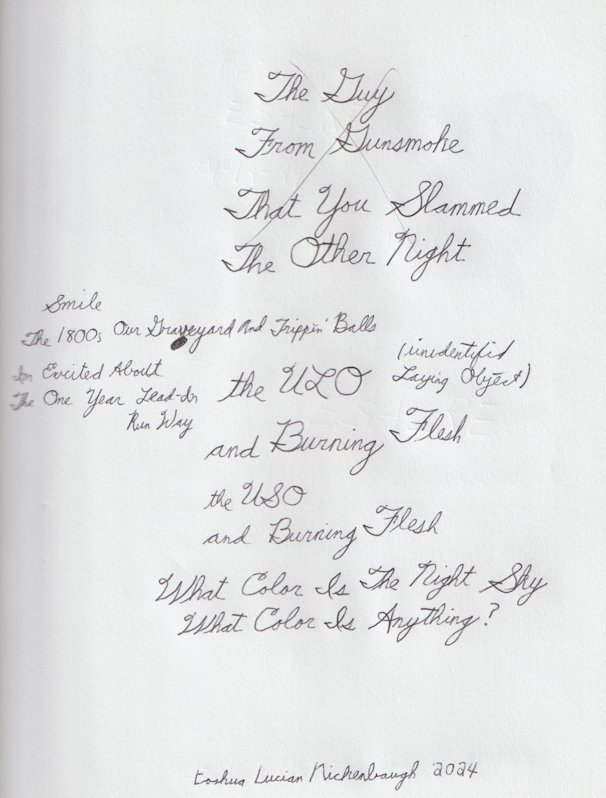 The Guy
From Gunsmoke
That You Slammed
The Other Night
Smile
The 1800s Our Graveyard And Trippin' Balls
Im Excited About
The One Year Lead-In
Run Way
(unidentifid
Laying Object)
the ULO
and Burning Flesh
the USO
and Burning Flesh
What Color Is The Night Sky
What Color Is Anything?
Lucian 2024